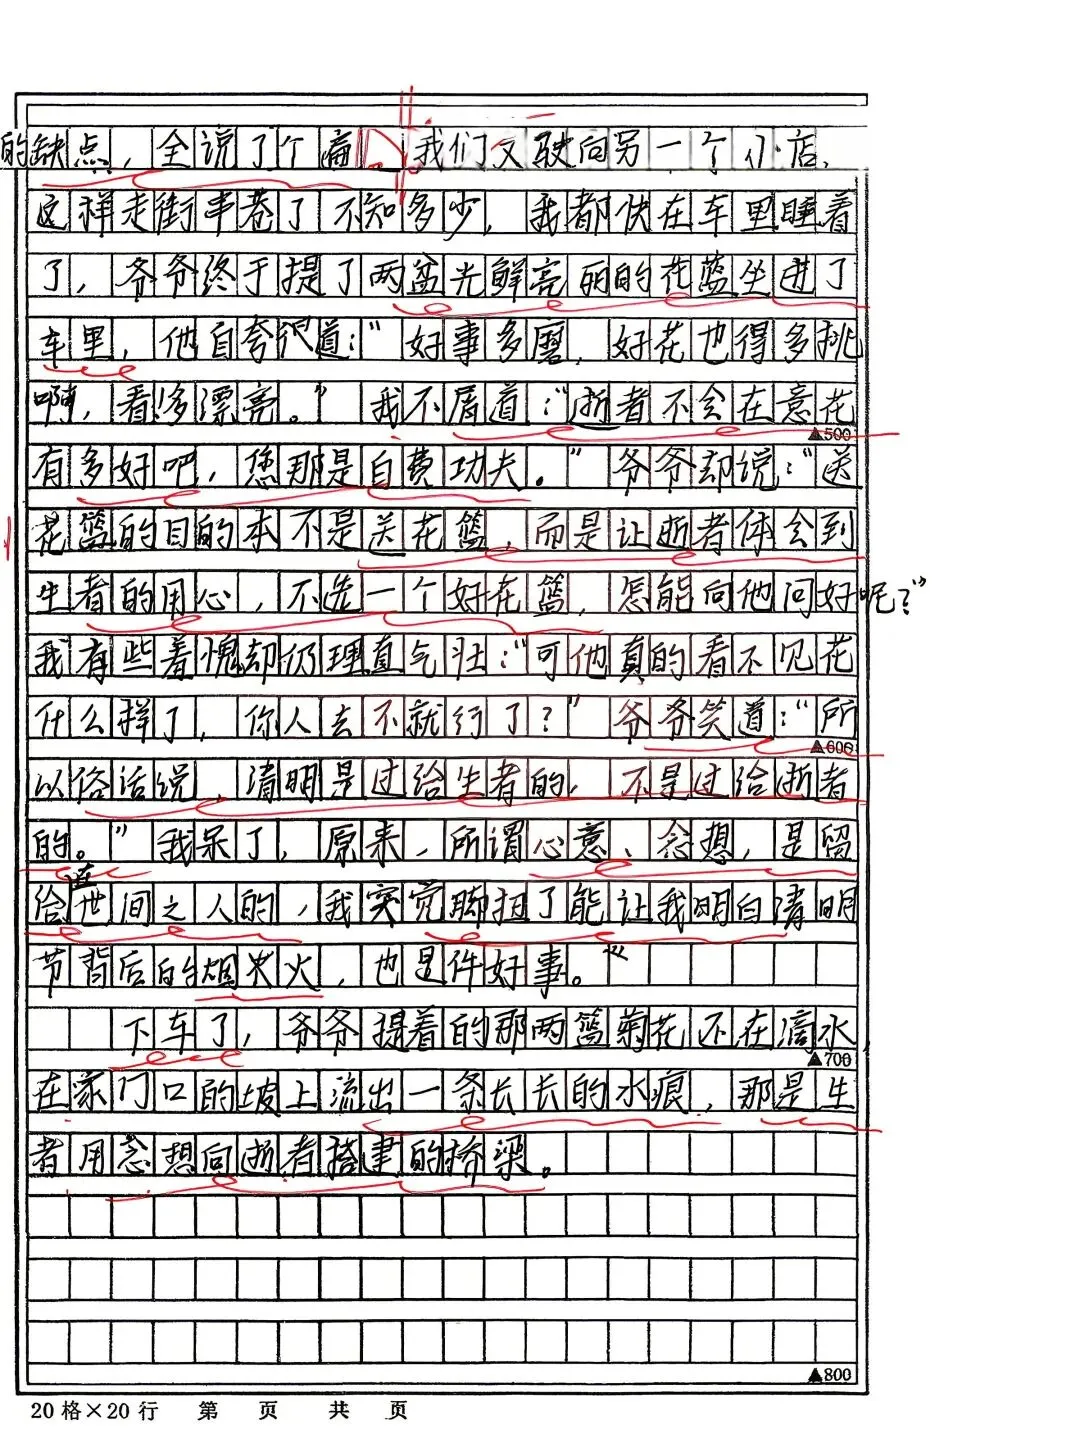 的缺点，全说了个扁。我们又驶向另一个小店，
这样走街串巷了不知多少，我都快在车里睡着
了，爷爷终于提了两盆光鲜亮丽的花蓝坐进了
车里，他自夸似道：“好事多磨，好花也得多挑
啊，看！多漂亮。”我不屑道：“逝者不会在意花
有多好吧，您那是白费功夫。”爷爷却说：“送
花篮的目的本不是关花篮，而是让逝者体会到
生者的用心，不选一个好花篮，怎能向他问好呢？”
我有些羞愧却仍理直气壮：“可他真的看不见花
什么样了，你人去不就行了？”爷爷笑道：“所
以俗话说，清明是过给生者的，不是过给逝者
的。”我呆了，原来，所谓心意、念想，是留
给在世间之人的，我突觉脚扭了能让我明白清明
节背后的烟火，也是件好事。
下车了，爷爷提着的那两篮菊花还在滴水
▲500
▲600
▲700
在家门口的坡上流出一条长长的水痕，那是生
者用念想向逝者搭建的桥梁。
▲800
20格×20行 第 页 共 页